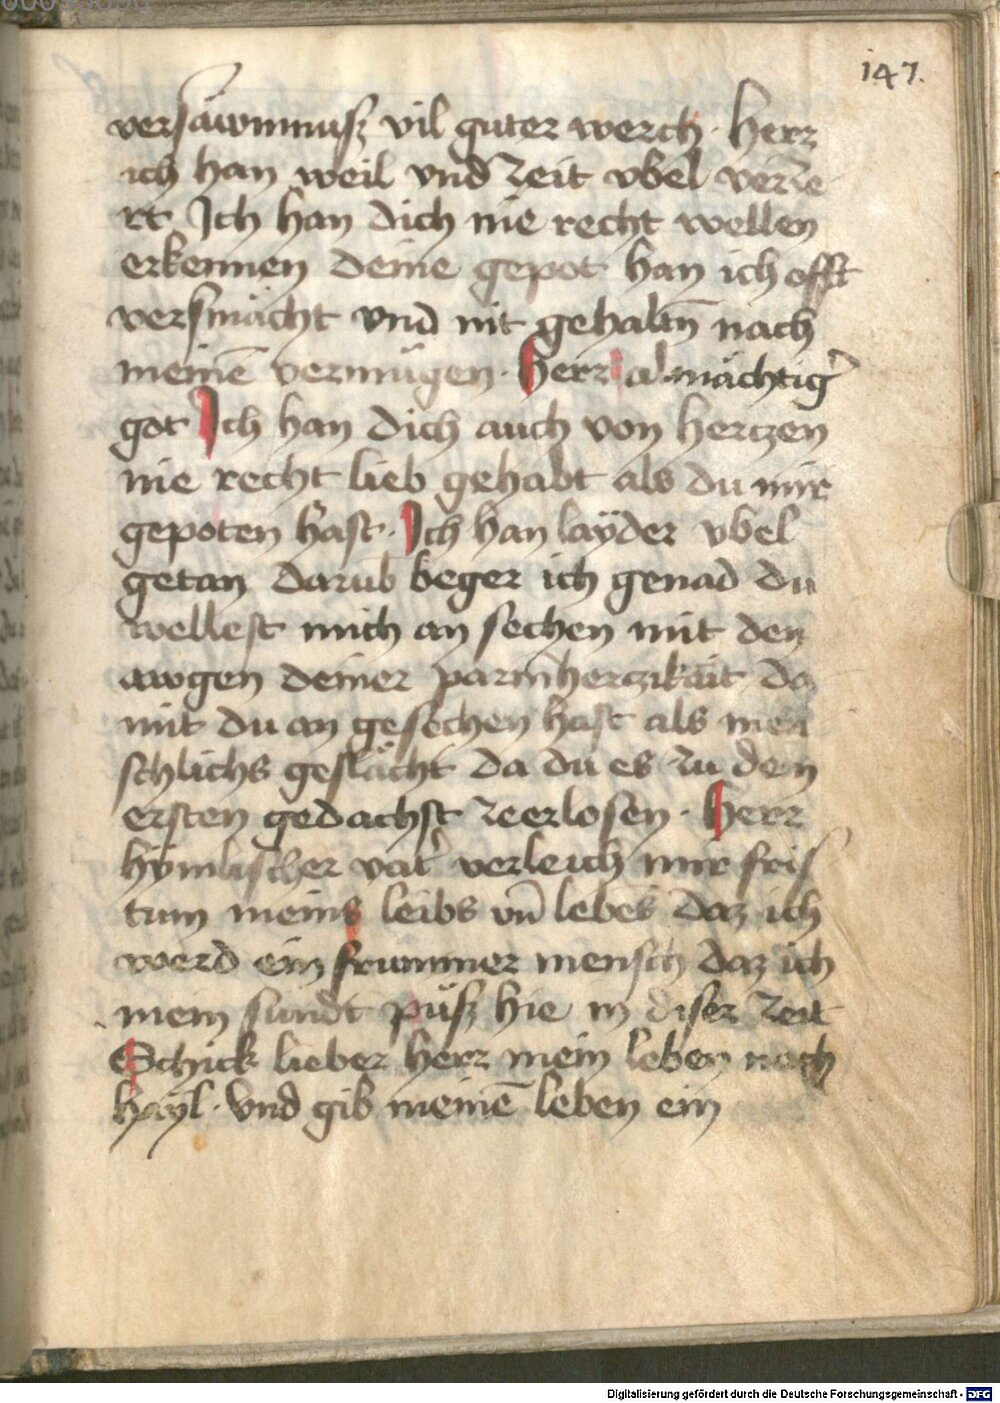 147.
versäwmnusz vil guter werch · herr
ich han weil vnd zeit vbel verze
rt Ich han dich nie recht wellen
erkennen deine gepot han ich offt
versmächt vnd nit gehaltn̄ nach
meinē vermügen · Herr almächtig
got Ich han dich auch von hertzen
nie recht lieb gehabt als du mir
gepoten hast · Ich han layder vbel
getan darūb beger ich genad du
wellest mich an sechen mit den
awgen deiner parmherczikäit da
mit du an gesechen hast als men
schlichs geslächt da du es zu dem
ersten gedachst zeerlosen · Herr
hymlischer vat verleich mir fris
tum meins leibs vn̄ lebēs daz ich
werd ein frummer mensch daz ich
mein sundt püsz hie in diser zeit
Schick lieber herr mein leben nach
hayl · vnd gib meinē leben ein
Digitalisierung gefördert durch die Deutsche Forschungsgemeinschaft - DFG